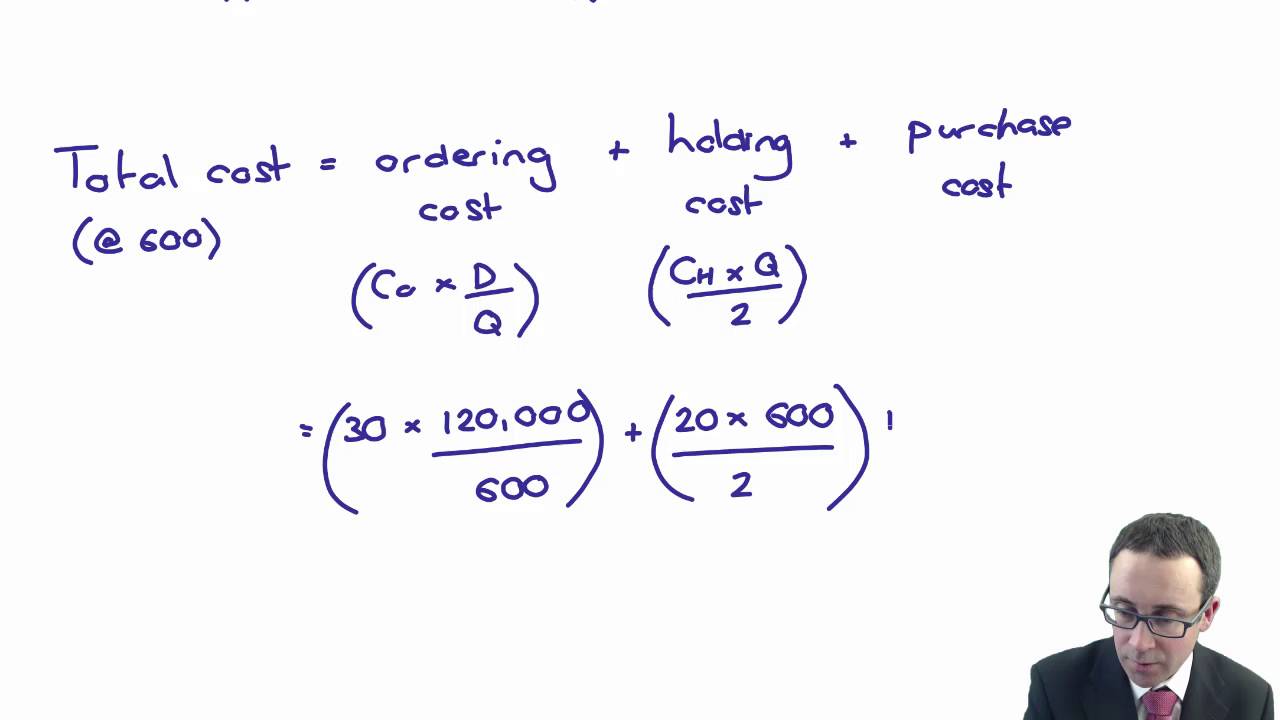 Total cost = ordering cost + holding cost + purchase cost
(@ 600)
(Co × D/Q) (CH × Q/2)
= (30 × 120,000/600) + (20 × 600/2)